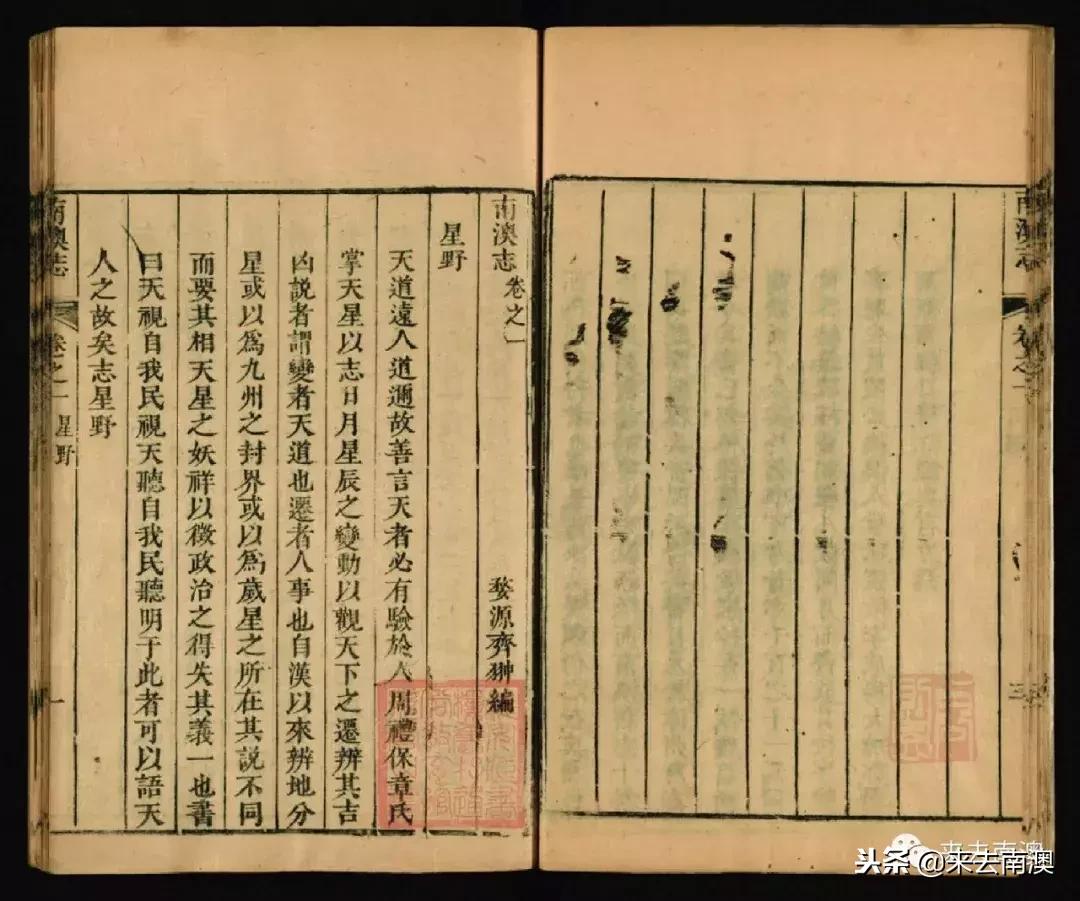 南澳志卷之一
婺源齊翀編
星野
天道遠人道邇故善言天者必有驗於人周禮保章氏
掌天星以志日月星辰之變動以觀天下之遷辨其吉
凶說者謂變者天道也遷者人事也自漢以來辨地分
星或以爲九州之封界或以爲歲星之所在其說不同
而要其相天星之妖祥以徵政治之得失其義一也書
曰天視自我民視天聽自我民聽明于此者可以語天
人之故矣志星野
南澳志
卷之一 星野
一
来去南澳
头条@来去南澳